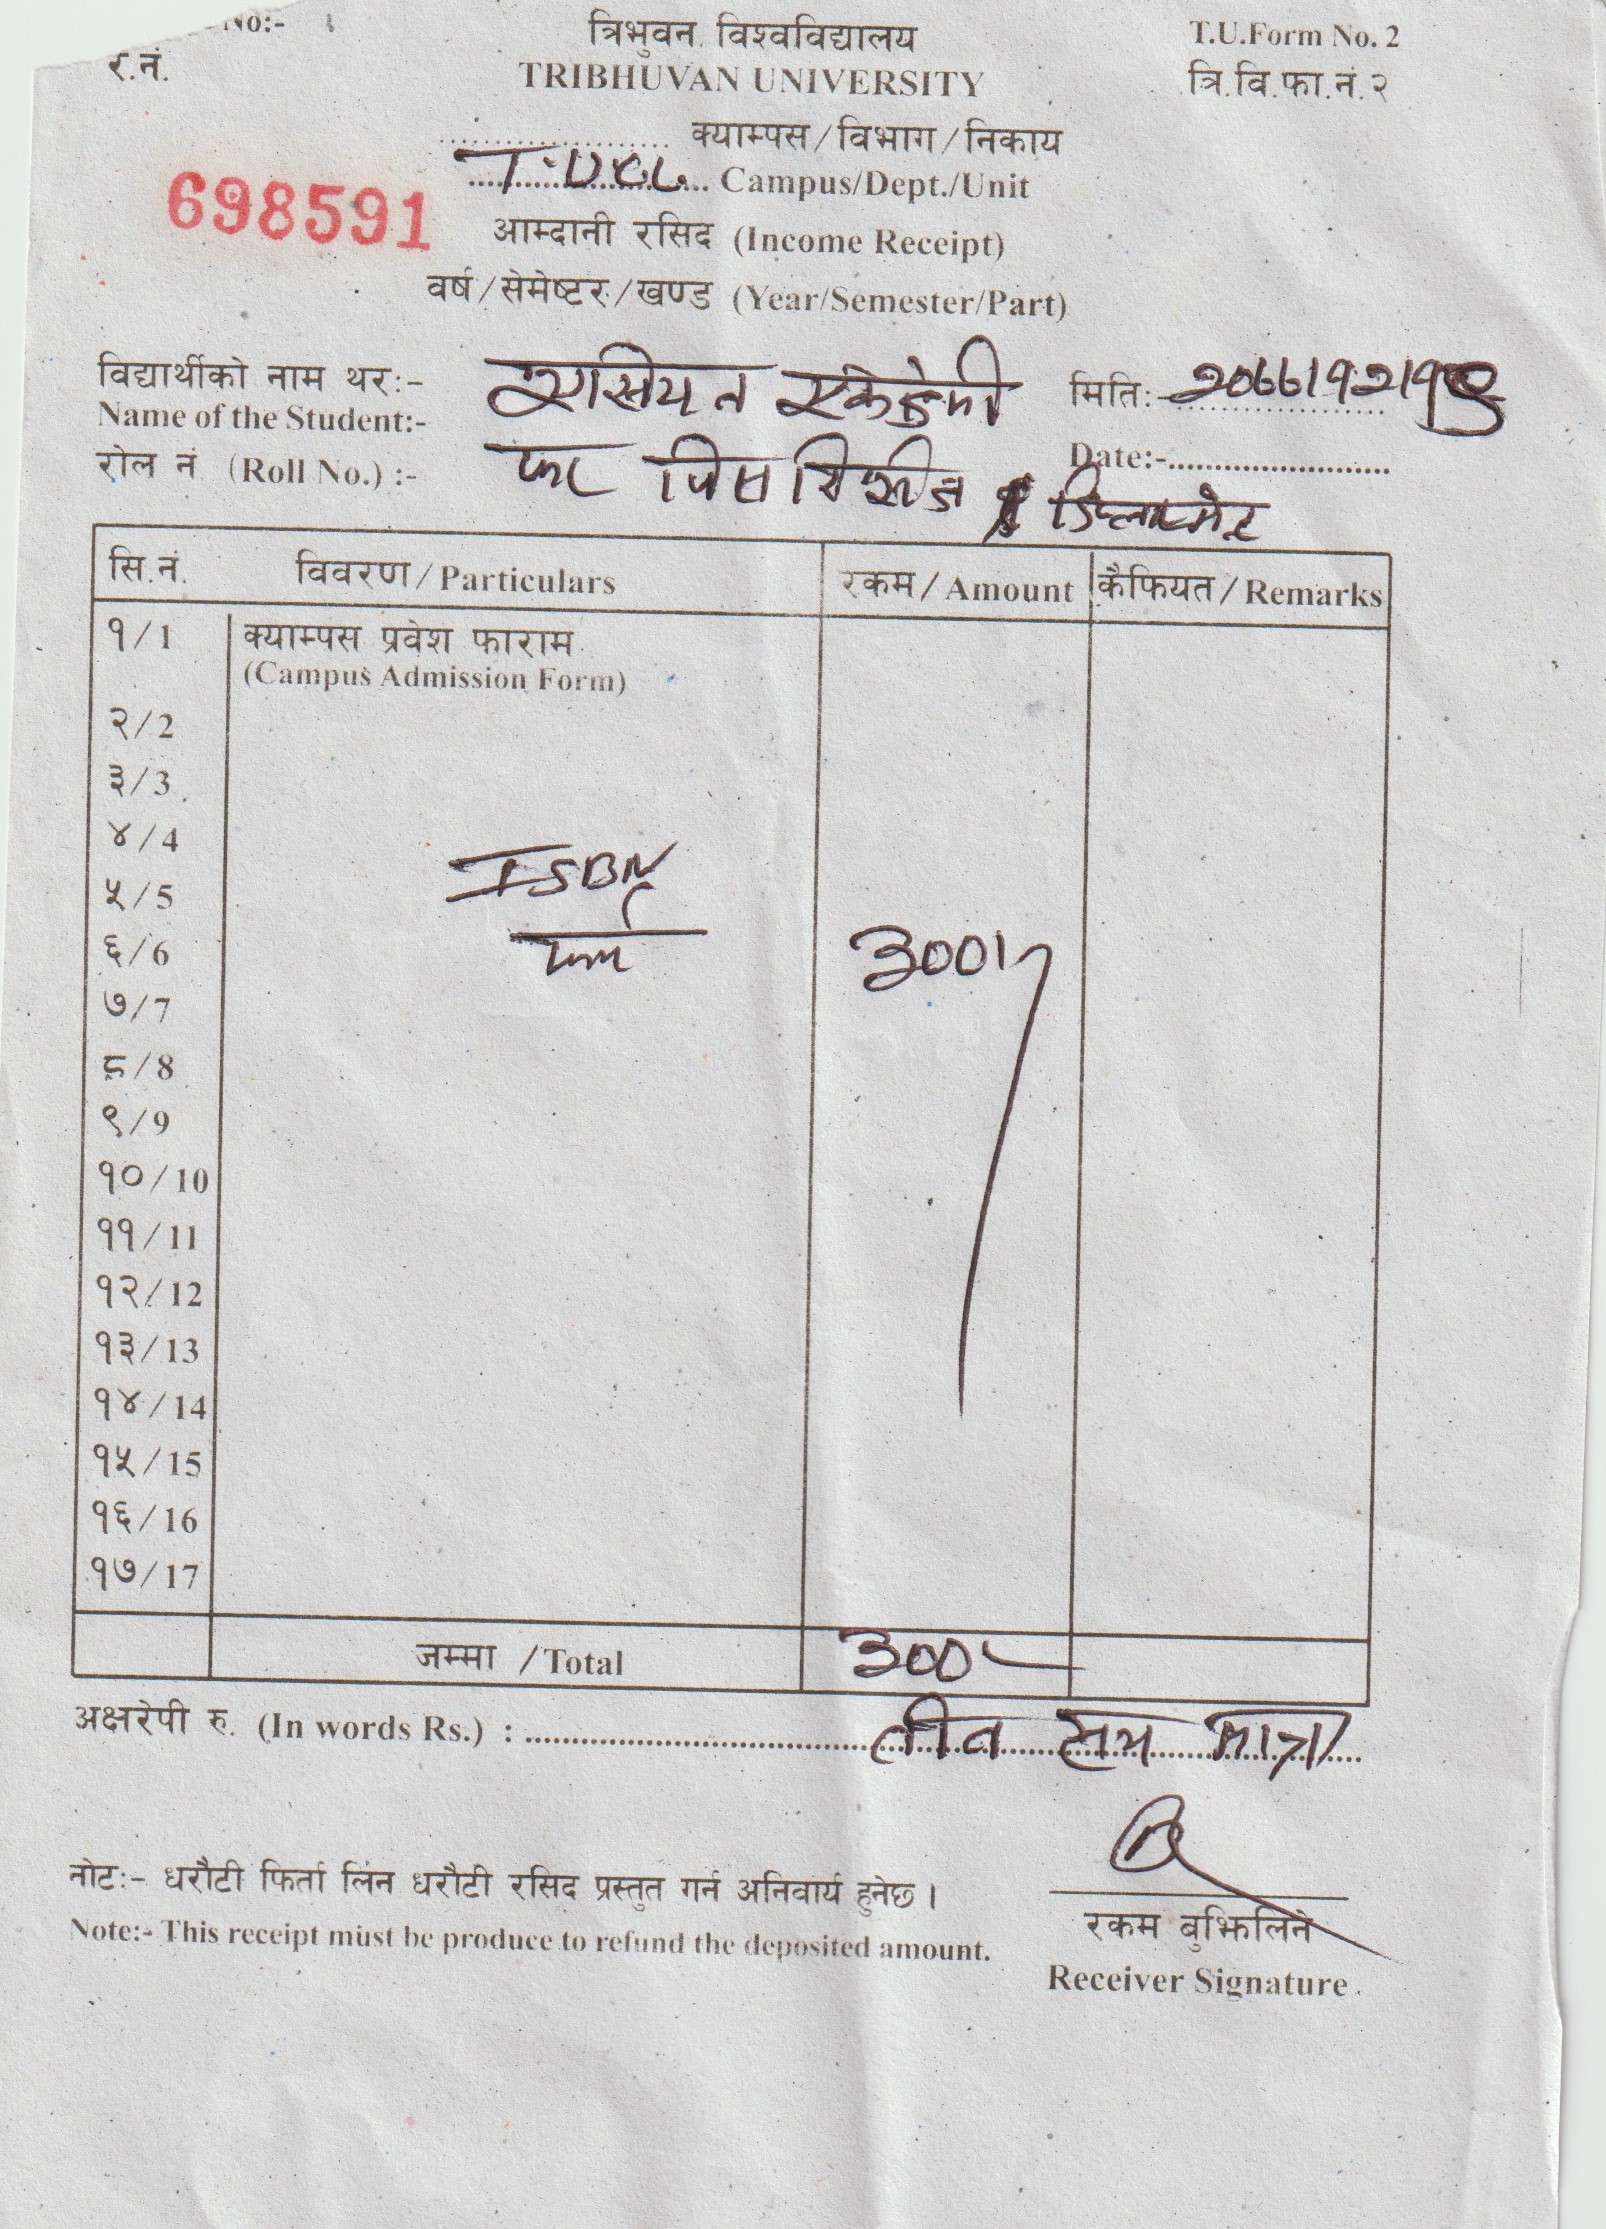 No:-
त्रिभुवन विश्वविद्यालय
T.U.Form No. 2
र.नं.
TRIBHUVAN UNIVERSITY
त्रि.वि.फा.नं.२
क्याम्पस/विभाग/निकाय
T.U.C.L. Campus/Dept./Unit
698591
आम्दानी रसिद (Income Receipt)
वर्ष/सेमेष्टर/खण्ड (Year/Semester/Part)
विद्यार्थीको नाम थरः-
एसियन एकेडेमी
मितिः-
Name of the Student:-
रोल नं (Roll No.) :-
फर पिस
Date:-
सि.नं. विवरण/Particulars रकम/Amount कैफियत/Remarks
१/1 क्याम्पस प्रवेश फाराम
(Campus Admission Form)
२/2
३/3
४/4
ISBN
५/5
६/6 फर्म 300।-
७/7
८/8
९/9
१०/10
११/11
१२/12
१३/13
१४/14
१५/15
१६/16
१७/17
जम्मा /Total 300-
अक्षरेपी रु. (In words Rs.) : तीन सय मात्र।
नोटः- धरौटी फिर्ता लिन धरौटी रसिद प्रस्तुत गर्न अनिवार्य हुनेछ ।
रकम बुझिलिने
Note:- This receipt must be produce to refund the deposited amount.
Receiver Signature